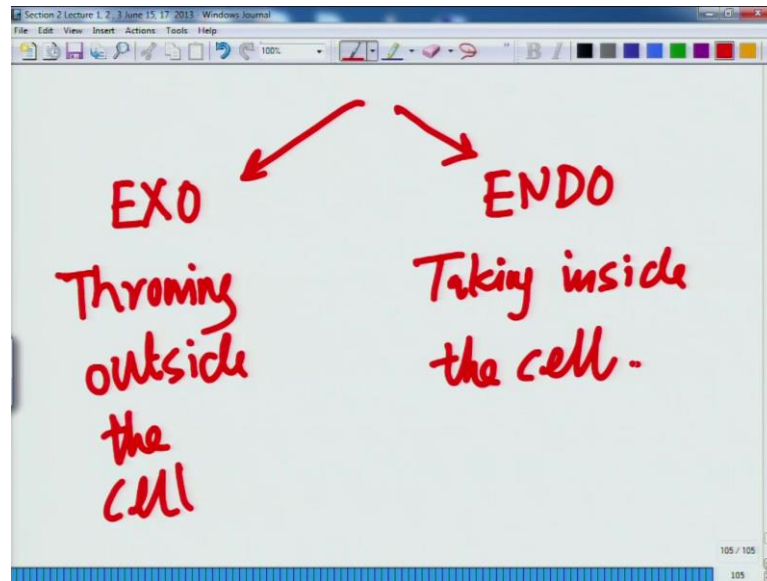 Section 2 Lecture 1, 2 , 3 June 15, 17 2013 - Windows Journal
File Edit View Insert Actions Tools Help
100% B I
EXO
Throwing
outside
the
cell
ENDO
Taking inside
the cell.
105 / 105
105